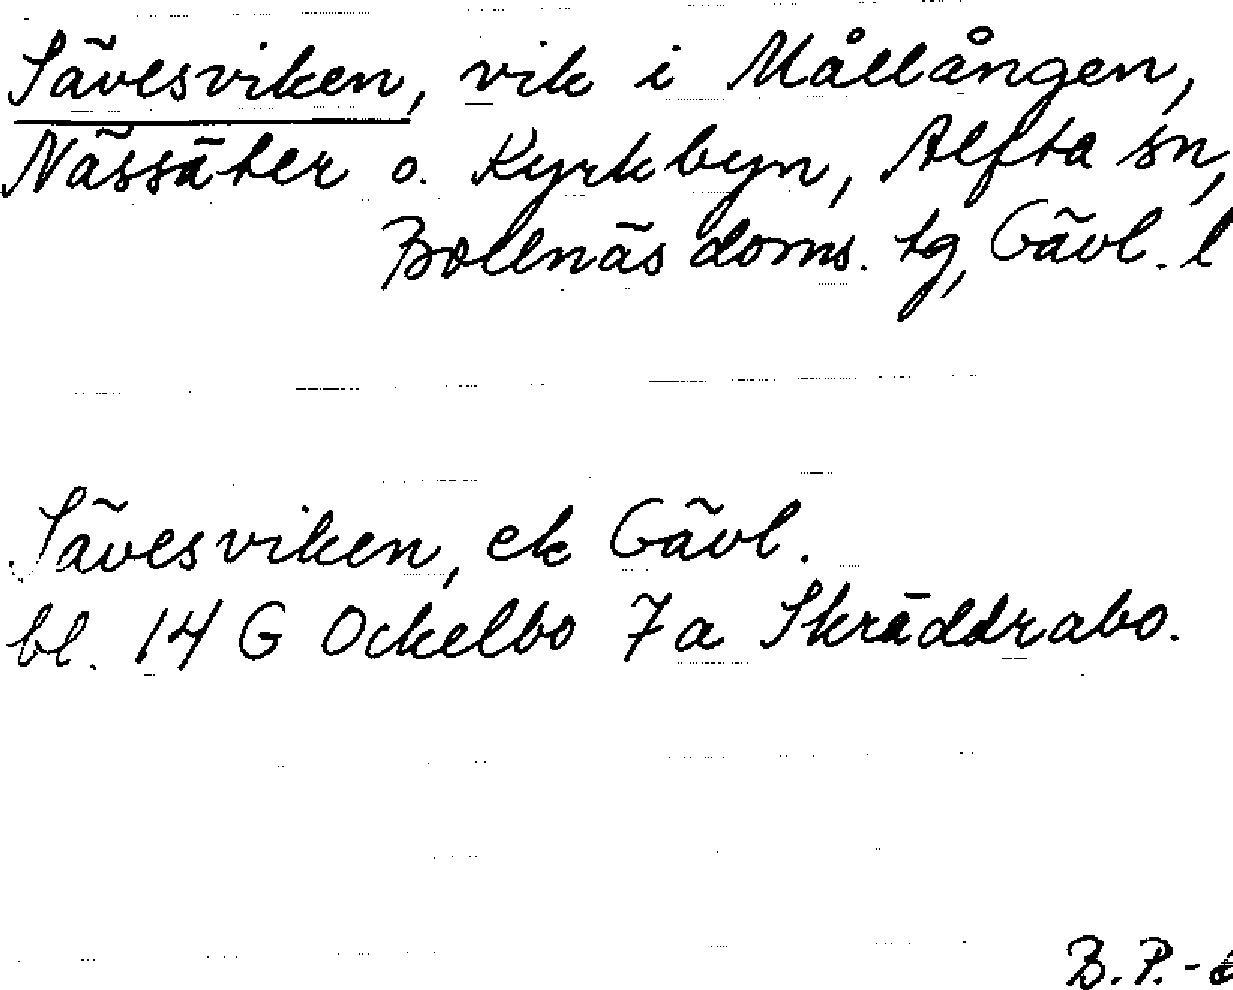 Sävesviken, vik i Mållången,
Nässäter o. Kyrkbyn, Alfta sn,
Bollnäs doms. tg, Gävl. l
Sävesviken, ek Gävl.
bl. 14 G Ockelbo 7a Skräddrabo.
B.P.-